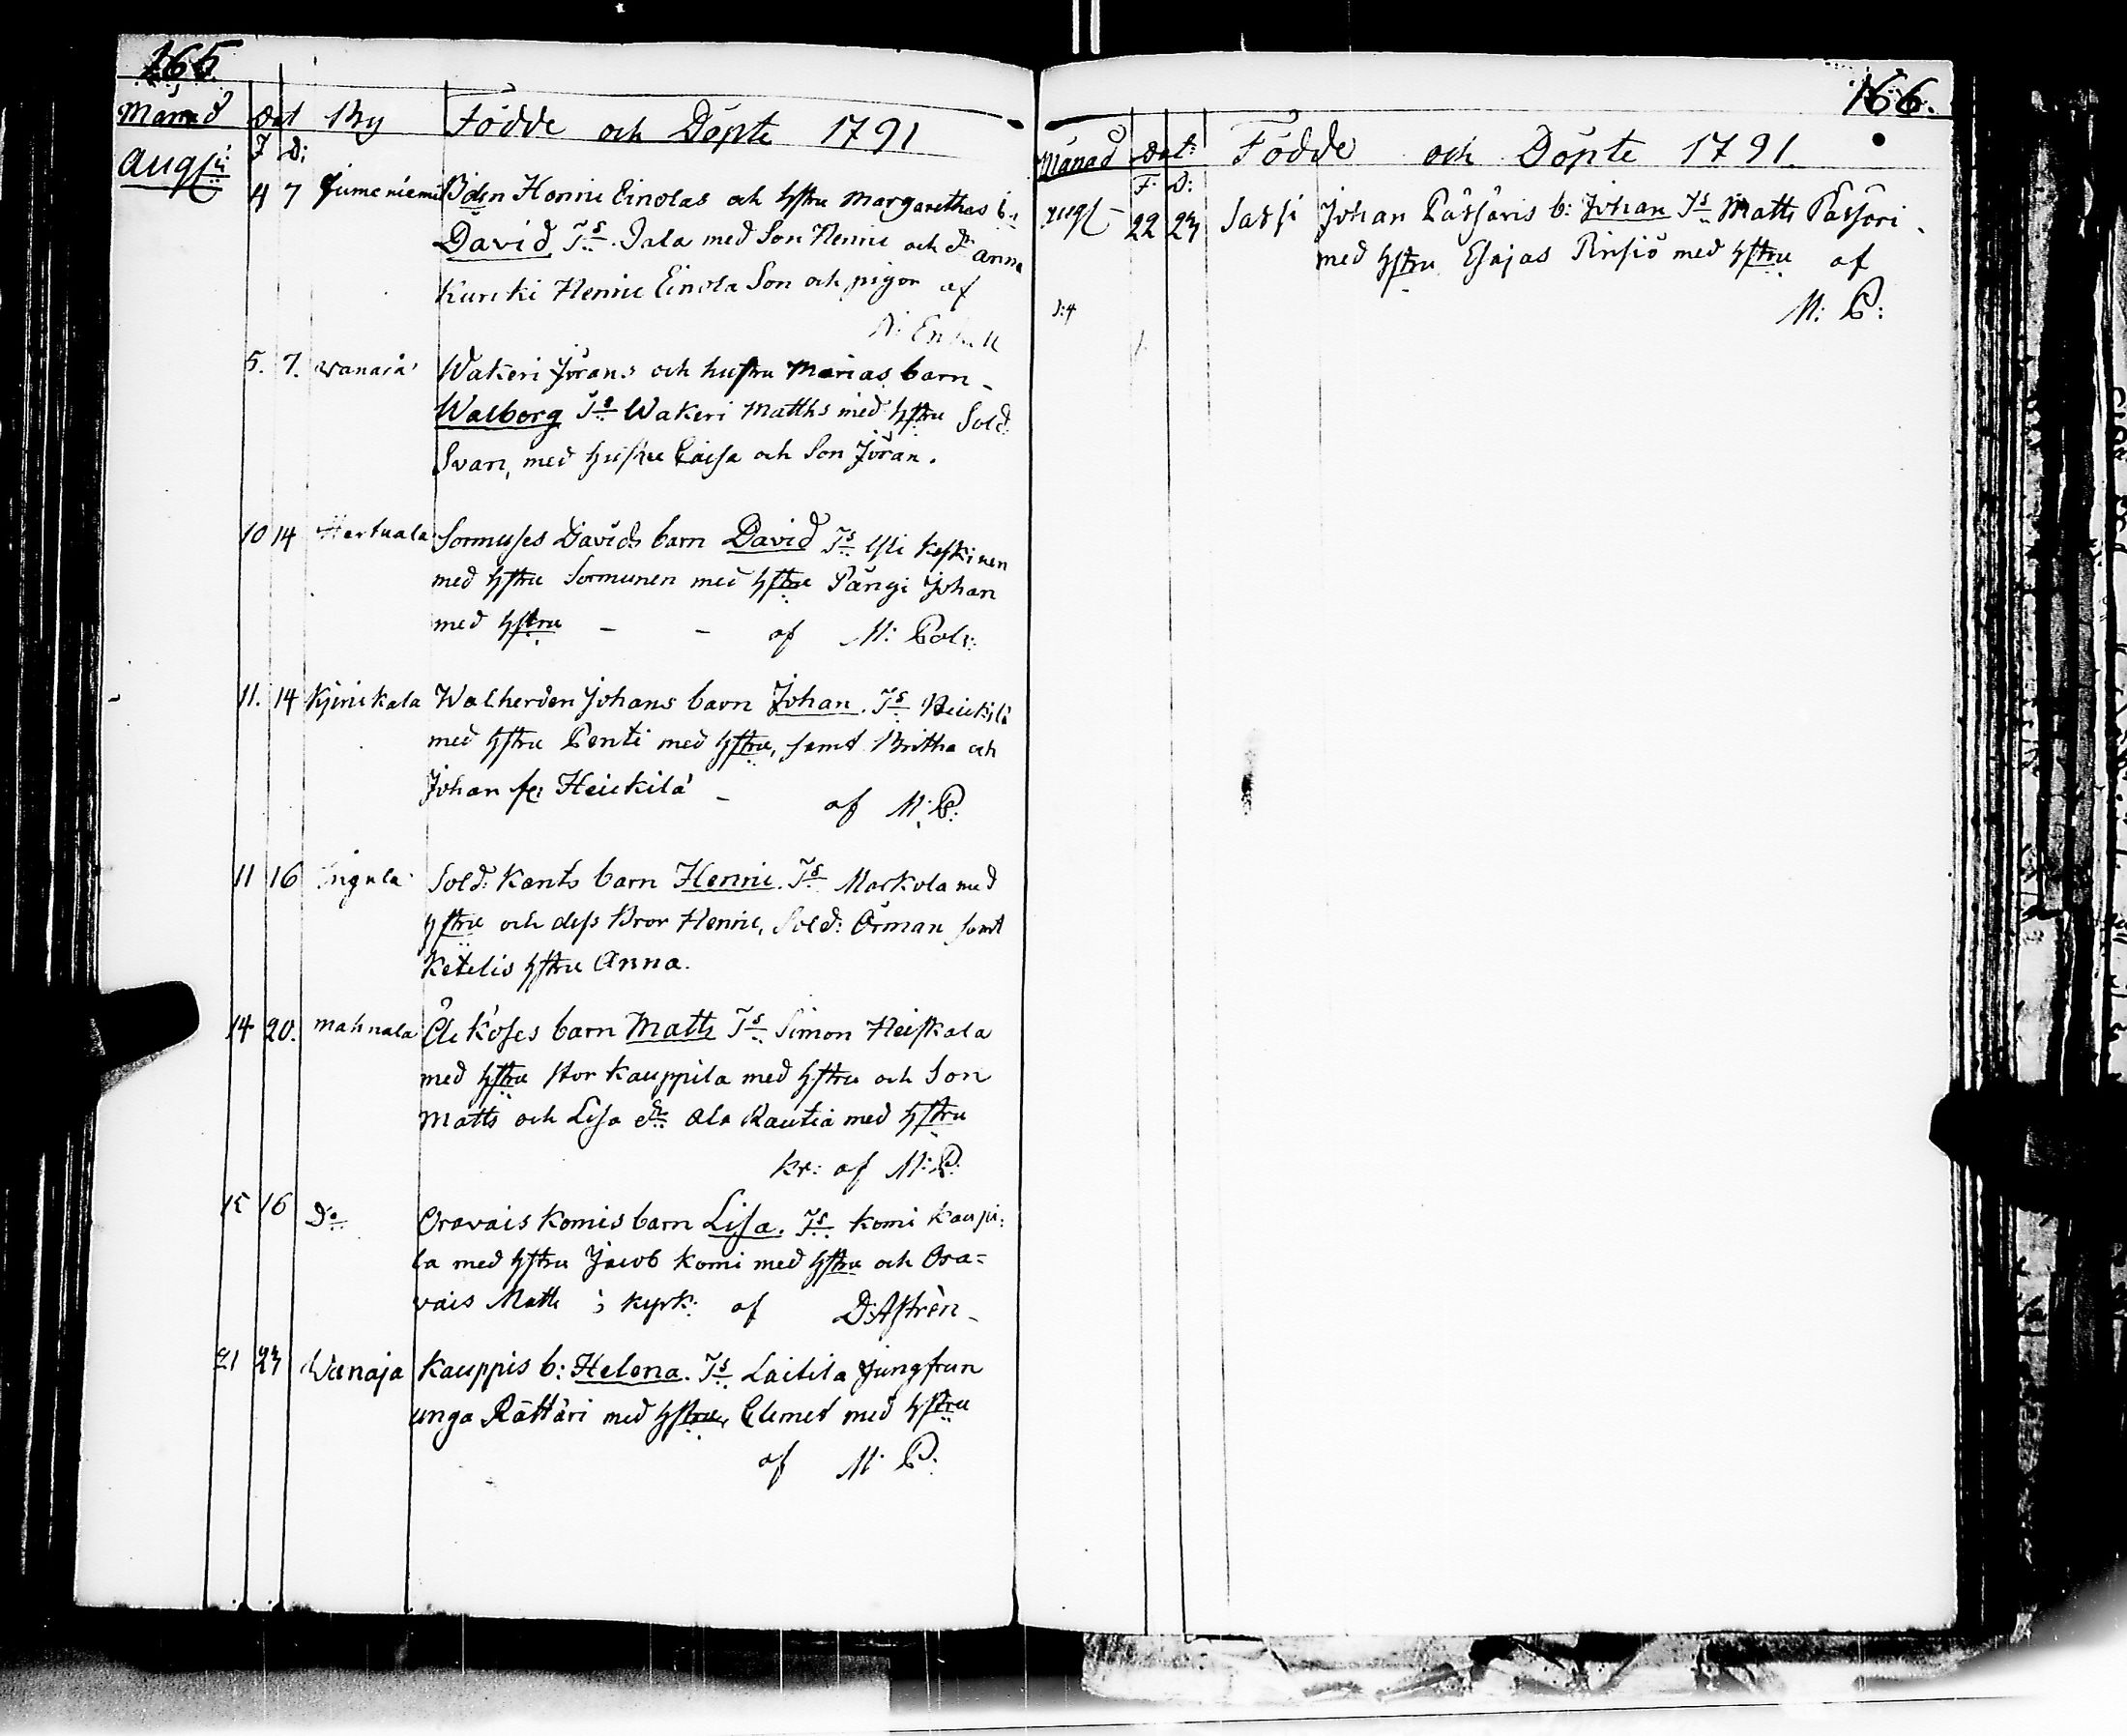 165.
Månad Dat By Födde och Döpte 1791
Augsti F D:
4 7 Jumeniemi Bdn Honni Einolas och hstru Margarethas b:
David Ts. Jala med Son Henric och dr Anna
Kurcki Henric Einola Son och pigor af
5. 7. Wanaiä Wakeri Jörans och hustru Marias barn
Walborg Ts Wakeri Matths med hstru Sold:
Svan, med hustru Caisa och Son Jöran.
10 14 Hertuala Sormuses Davids barn David Ts Keskinen
med hstru Sormunen med hstru Pängi Johan
med hstru - - af M: Pol:
11. 14 Kjrickala Walherden Johans barn Johan. Ts Heickilä
med hstru Penti med hstru, samt Britha och
Johan fr Heickilä - af M: P:
11 16 Sold: Kants barn Henric. Ts Markola med
hstru och dess Bror Henric, Sold: Örman samt
Ketelis hstru Anna.
14 20. Mahnala Åckoses barn Matts Ts Simon Heiskala
med hstru Stor Kauppila med hstru och Son
Matts och Lisa dr Ala Rautia med hstru
kr: af M: P:
15 16 Do Oravais Komis barn Lisa. Ts Komi Kaupi:
la med hstru Jacob Komi med hstru och Ora=
vais Matts i kyrk: af D: Astrèn
21 23 Wanaja Kauppis b: Helena. Ts Laitila Jungfrun
unga Rättäri med hstru, Clemet med hstru
af M: P:
166.
Månad Dat: Födde och Döpte 1791.
F: D:
Augst 22 23 Sassi Johan Passaris b: Johan Ts Matts Passari
med hstru Esajas Pinsiö med hstru af
M: P: